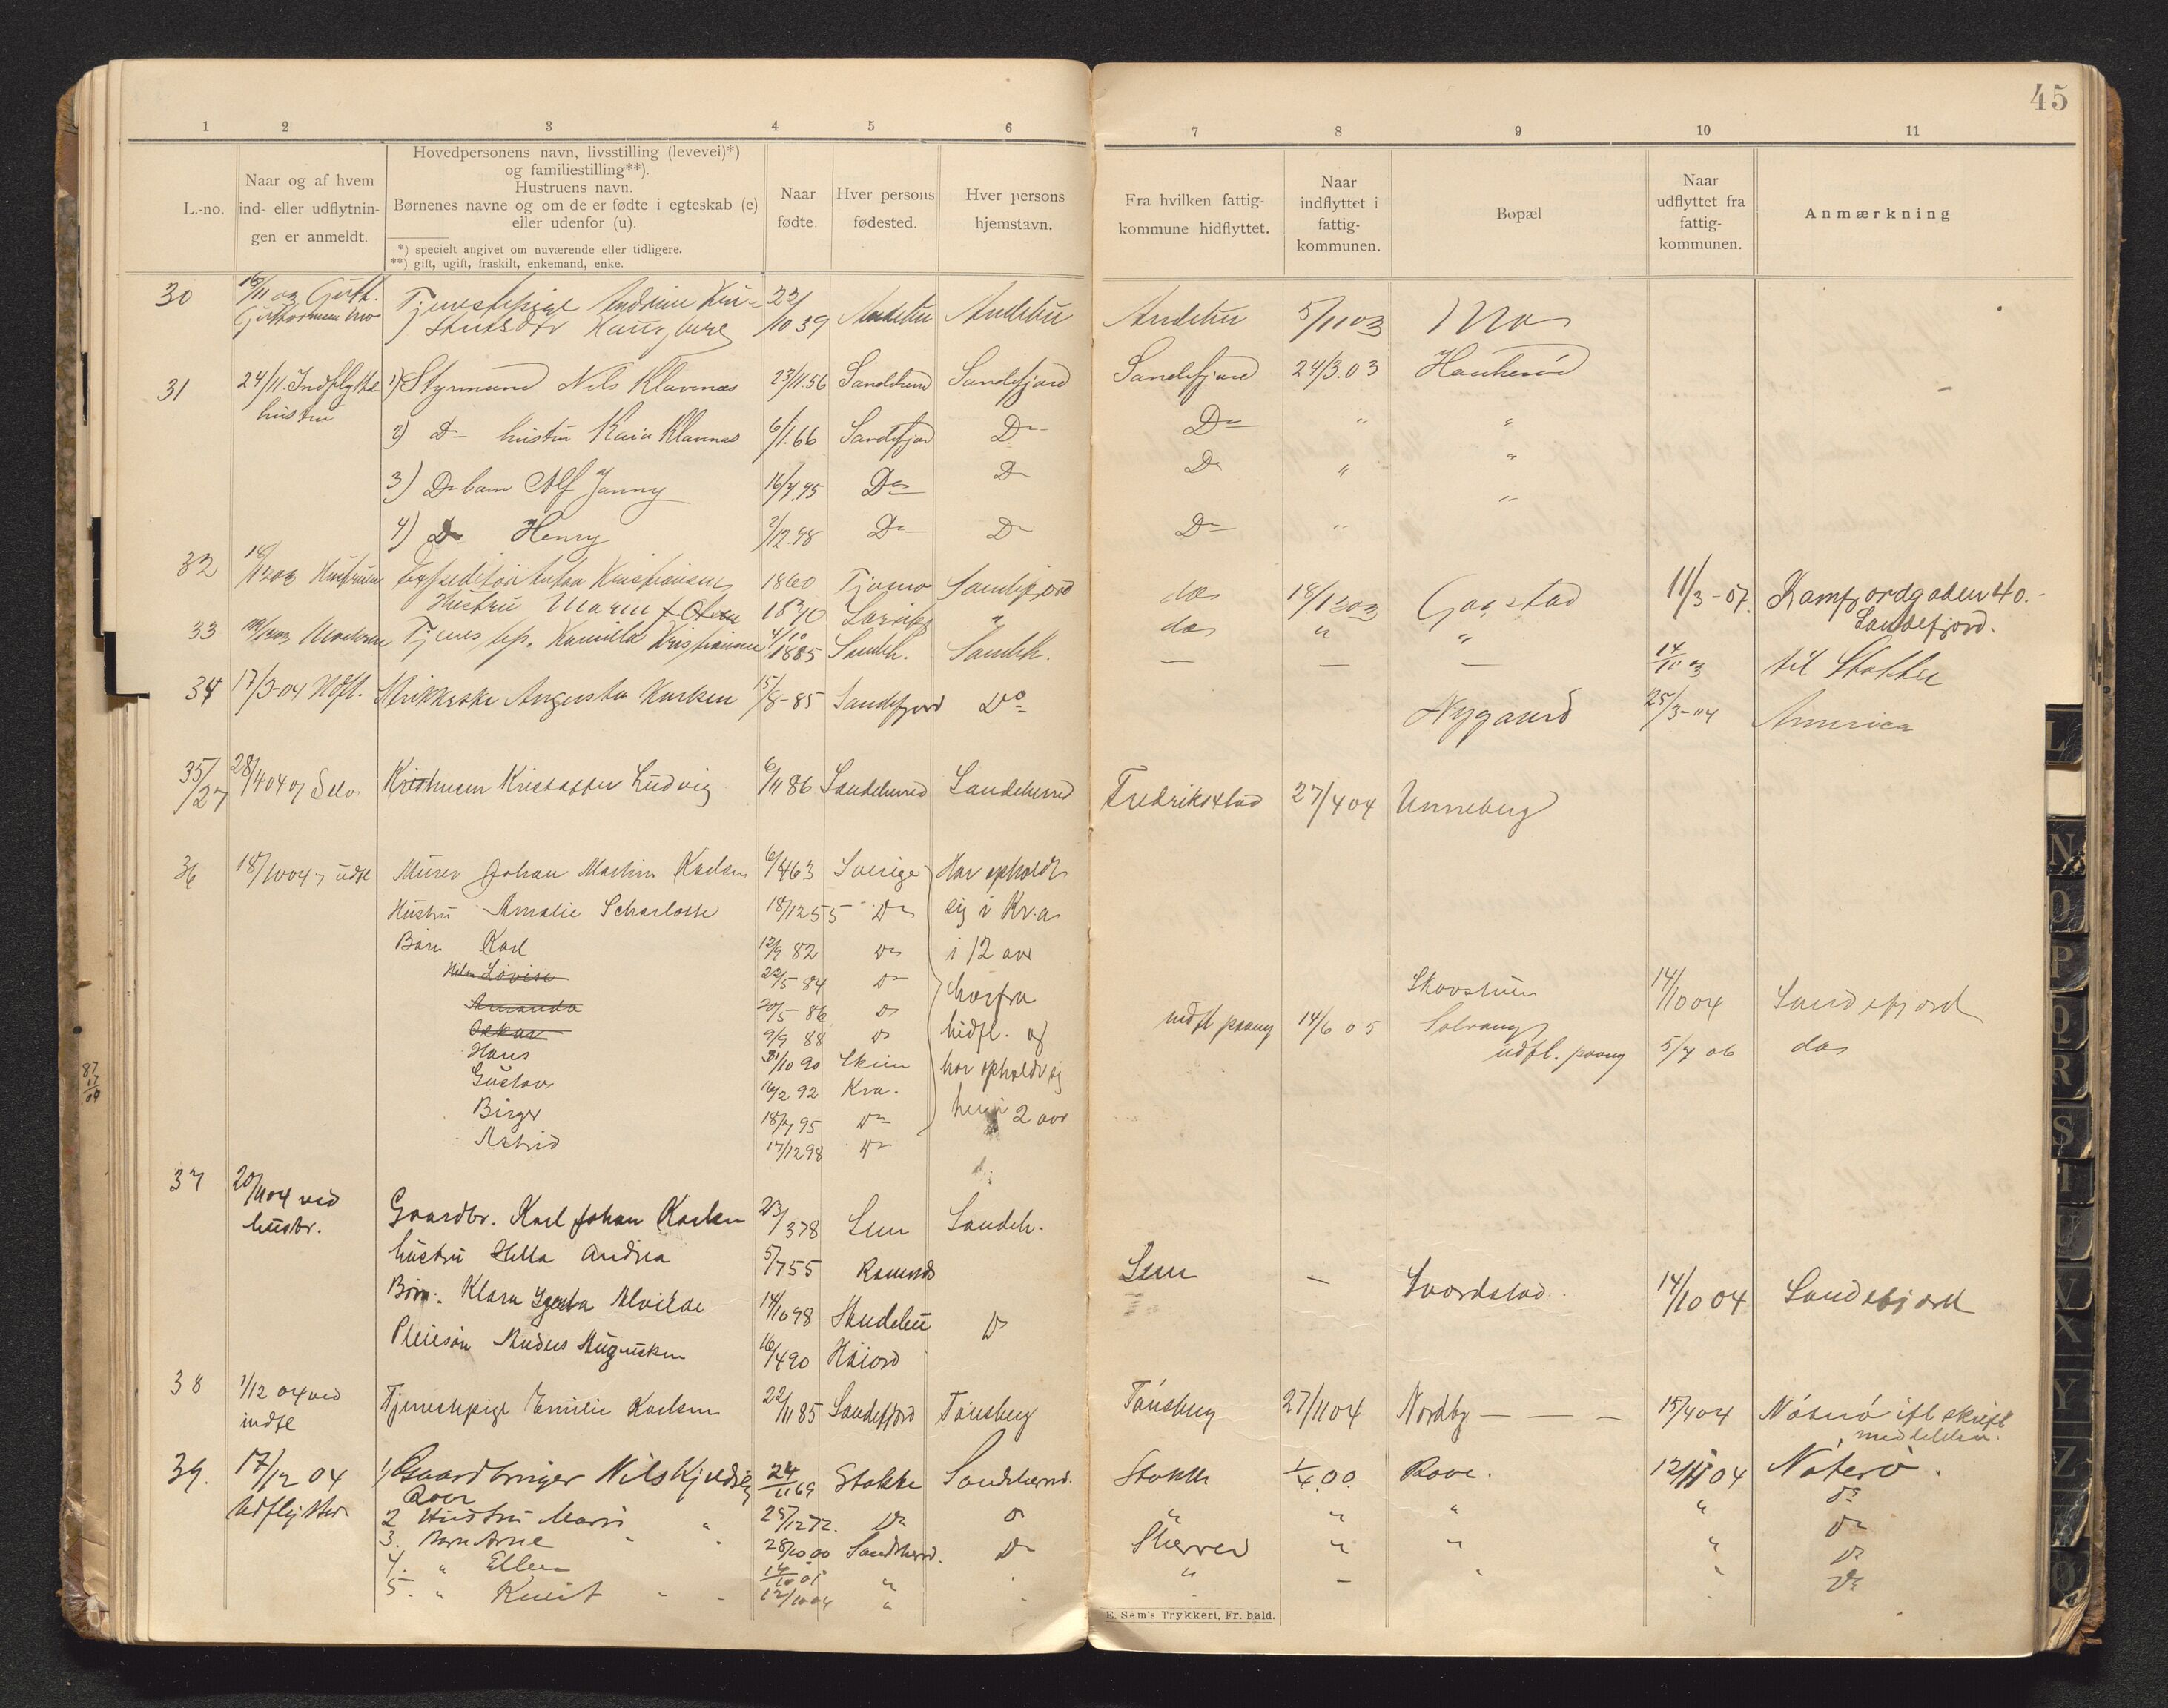 45
1 2 3 4 5 6 7 8 9 10 11
L.-no.
Naar og af hvem
ind- eller udflytnin-
gen er anmeldt.
Hovedpersonens navn, livsstilling (levevei)*)
og familiestilling**).
Hustruens navn.
Børnenes navne og om de er fødte i egteskab (e)
eller udenfor (u).
*) specielt angivet om nuværende eller tidligere.
**) gift, ugift, fraskilt, enkemand, enke.
Naar
fødte.
Hver persons
fødested.
Hver persons
hjemstavn.
Fra hvilken fattig-
kommune hidflyttet.
Naar
indflyttet i
fattig-
kommunen.
Bopæl
Naar
udflyttet fra
fattig-
kommunen.
Anmærkning
30 Tjenestepige Andrine 22/10 39 Andebu Andebu Andebu 5/11 03 Mo
31 24/11. Indflyttede 1) Styrmand Nils Klavenæs 23/11.56 Sandeherred Sandefjord Sandefjord 24/3.03 Haukerød
hustru 2) Do hustru Kaia Klavenæs 6/1.66 Sandefjord Do Do " "
3) Do barn Alf Janny 16/7.95 Do Do Do " "
4) Do Henry 2/12.98 Do Do Do " "
32 18/12 03 Hustruen Expeditør Anton Kristiansen 1860 Tjømø Sandefjord do 18/12 03 Gogstad 11/3-07. Kamfjordgaden 40.-
Hustru Maren f. Olsen 1840 Larvik " do " " Sandefjord.
33 Moderen Tjenestep. Kamilla Kristiansen 4/10 1885 Sandeh. Sandeh. — — — 14/11 03 til Stokke
34 17/3-04 Udfl. Strikkerske Augusta Karlsen 15/8-85 Sandefjord Do Nygaard 25/3-04 America
35/27 28/4 04 af Selv Kristensen Kristoffer Ludvig 6/11 86 Sandeherred Sandeherred Fredrikstad 27/4 04 Unneberg
36 18/10 04 udfl Murer Johan Martin Karlsen 6/4 63 Sverige Har opholdt
Hustru Amalie Scharlotte 18/12 55 Do sig i Kr.a
Børn Karl 12/9 82 Do i 12 aar
Lovise 22/5 84 Do herfra
Amanda 20/5 86 Do Skovstuen 14/10 04 Sandefjord
Oskar 9/9 88 Do hidfl. og indfl paany 14/6 05 Solvang
Hans 31/10 90 Skien har opholdt sig udfl. paany 5/7 06 do
Gustav 16/2 92 Kra.
Birger 18/7 95 Do her i 2 aar
Astrid 17/12 98 Do
37 20/11 04 ved Gaardbr. Karl Johan Karlsen 23/3 78 Sem Sandeh.
husbr. hustru Hella Andrea 5/7 55 Ramnes Sem — Svardstad 14/10 04 Sandefjord
Børn: Klara Alvilde 14/10 98 Skudelu Do
Pleiesøn Anders Augustsen 16/4 90 Høiord
38 1/12 04 ved Tjenestepige Emilie Karlsen 22/11 85 Sandefjord Tønsberg Tønsberg 27/11 04 Nordby — — — 15/4 04 Nøterø ifl skriftl
indfl meddelelse.
39. 17/12 04 1) Gaardbruger Nils Kjeldsen 24/11 69 Stokke Sandeherred. Stokke 1/4.00. Rove. 12/11 04 Nøterø.
Udflyttet Rove
2 Hustru Marie " 25/12 72. Do Do " " " " Do
3. Barn Arne " " 28/10 00 Sandeherred. Do Sherred " " " Do
4. " Ellen 14/10 01 " " " Do
5. " Knut 12/10 04 " Do
87
17
04
L N O P Q R S T V X Y Z Æ Ø
E. Sem's Trykkeri, Fr. hald.